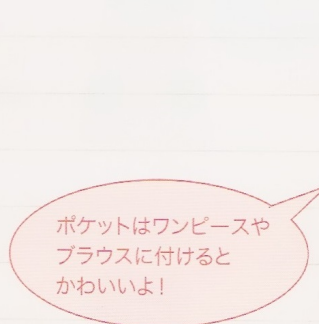 ポケットはワンピースや
ブラウスに付けると
かわいいよ!